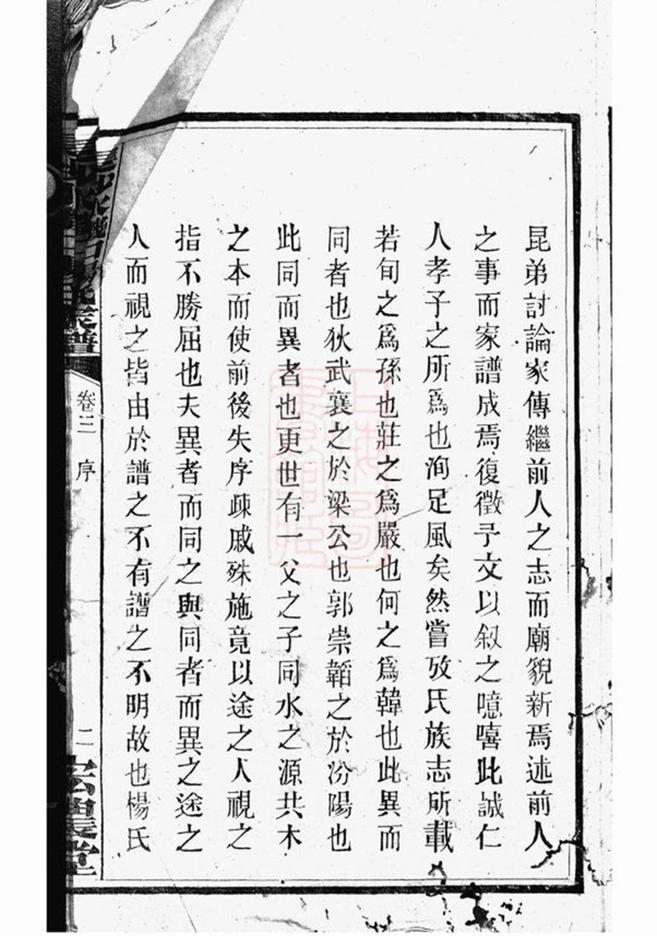 昆弟討論家傳繼前人之志而廟貌新焉述前人
之事而家譜成焉復徵予文以叙之噫嘻此誠仁
人孝子之所爲也洵足風矣然嘗攷氏族志所載
若旬之爲孫也莊之爲嚴也何之爲韓也此異而
同者也狄武襄之於梁公也郭崇韜之於汾陽也
此同而異者也更世有一父之子同水之源共木
之本而使前後失序疎戚殊施竟以途之人視之
指不勝屈也夫異者而同之與同者而異之途之
人而視之皆由於譜之不有譜之不明故也楊氏
宗譜
卷三
序
二
堂